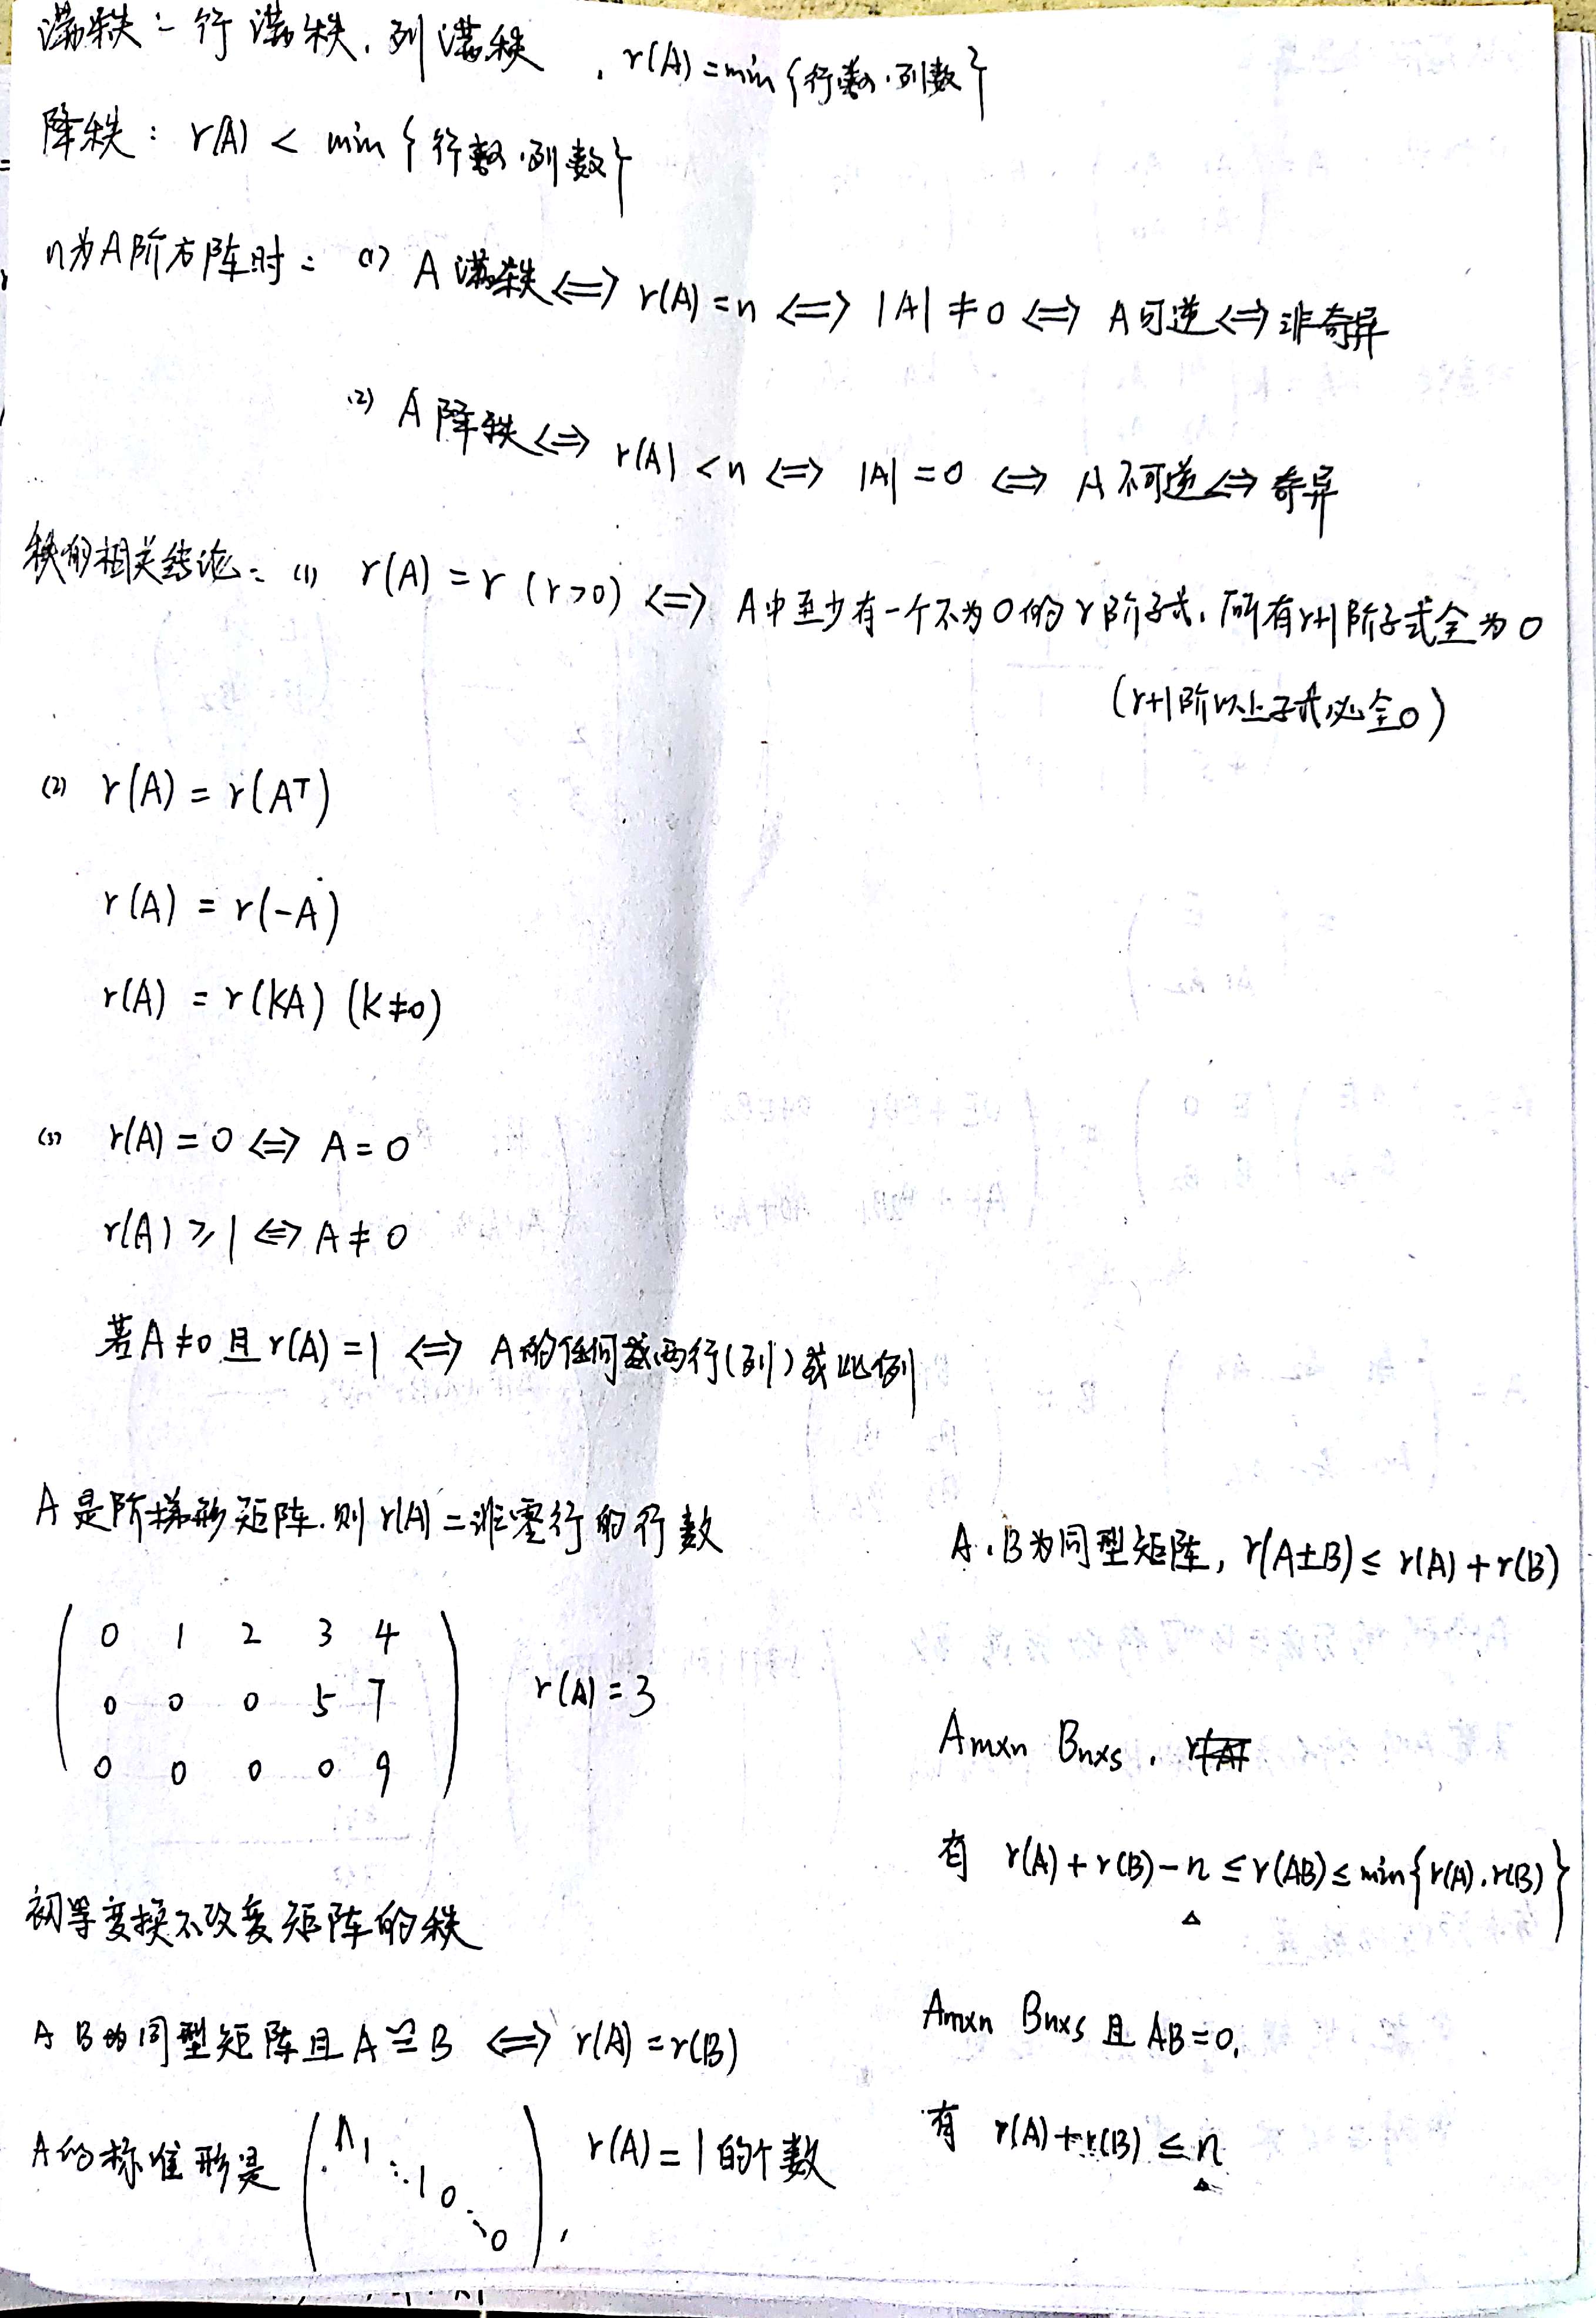 满秩：行满秩，列满秩，r(A)=min{行数,列数}
降秩：r(A) < min{行数,列数}
n为A阶方阵时：(1) A满秩⇔r(A)=n⇔|A|≠0⇔A可逆⇔非奇异
(2) A降秩⇔r(A)<n⇔|A|=0⇔A不可逆⇔奇异
秩的相关结论：(1) r(A)=r (r>0)⇔A中至少有一个不为0的r阶子式,所有r+1阶子式全为0
(r+1阶以上子式必全0)
(2) r(A)=r(Aᵀ)
r(A)=r(-A)
r(A)=r(KA) (K≠0)
(3) r(A)=0⇔A=0
r(A)≥1⇔A≠0
若A≠0且r(A)=1⇔A的任何两行(列)成比例
A是阶梯形矩阵.则r(A)=非零行的行数
0 1 2 3 4
0 0 0 5 7 r(A)=3
0 0 0 0 9
初等变换不改变矩阵的秩
A B为同型矩阵且A≅B⇔r(A)=r(B)
A的标准形是(1 1 ⋱ 1 0 ⋱ 0), r(A)=1的个数
A.B为同型矩阵, r(A±B)≤r(A)+r(B)
Am×n Bn×s.
有 r(A)+r(B)-n≤r(AB)≤min{r(A).r(B)}
Am×n Bn×s且AB=0,
有 r(A)+r(B)≤n